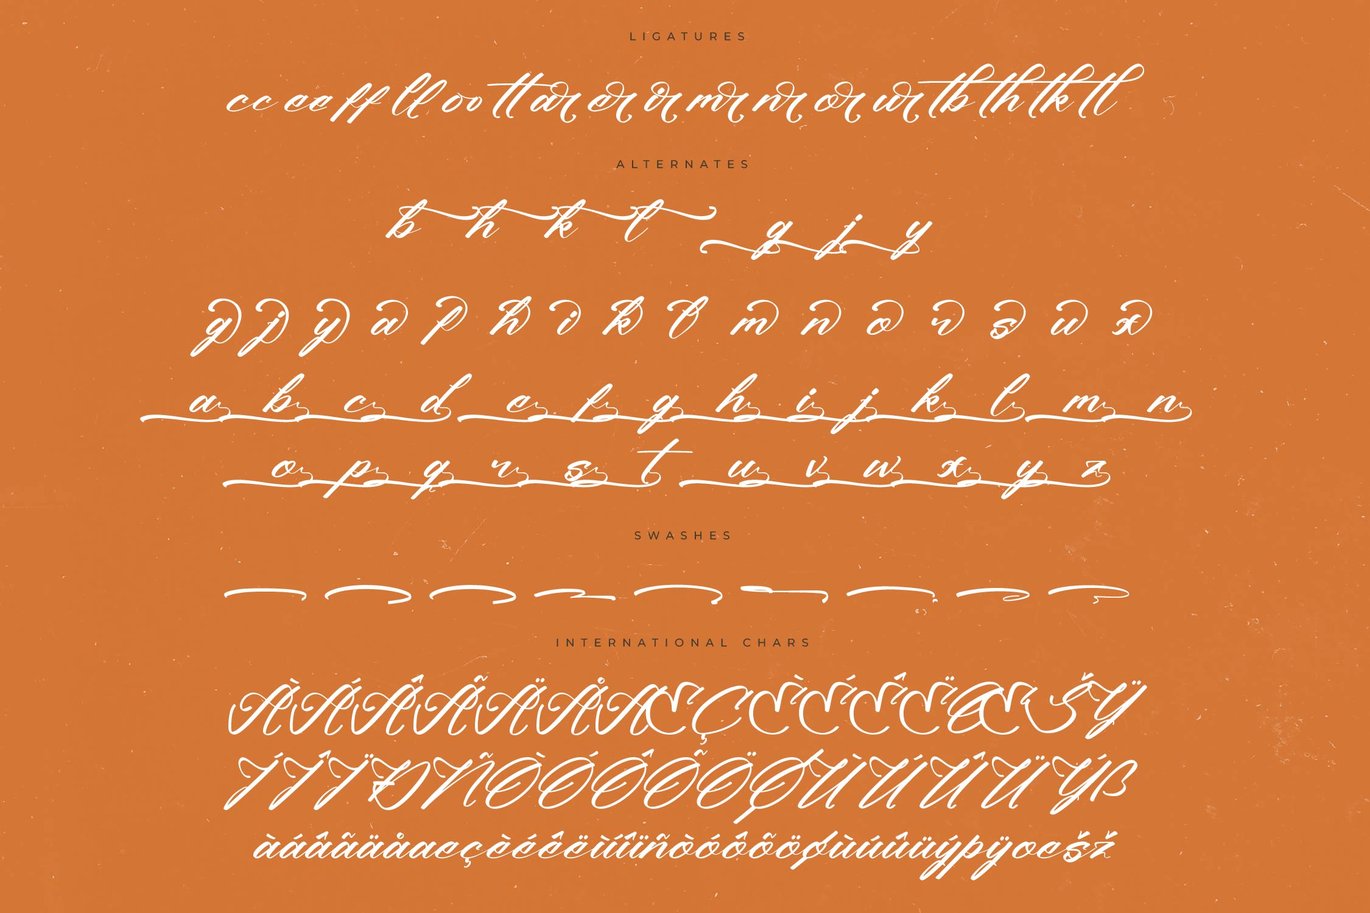 LIGATURES
cc ee ff ll oo tt ar er ir mr nr or ur tb th tk tl
ALTERNATES
b h k t g j y
g j y a f h i k l m n o r s u x
a b c d e f g h i j k l m n
o p q r s t u v w x y z
SWASHES
INTERNATIONAL CHARS
ÀÁÂÃÄÅÆÇÈÉÊËŒŠŸ
ÍÎÏÐÑÒÓÔÕÖØÙÚÛÜÝß
àáâãäåæçèéêëìíîïñòóôõöøùúûüýþÿœšž